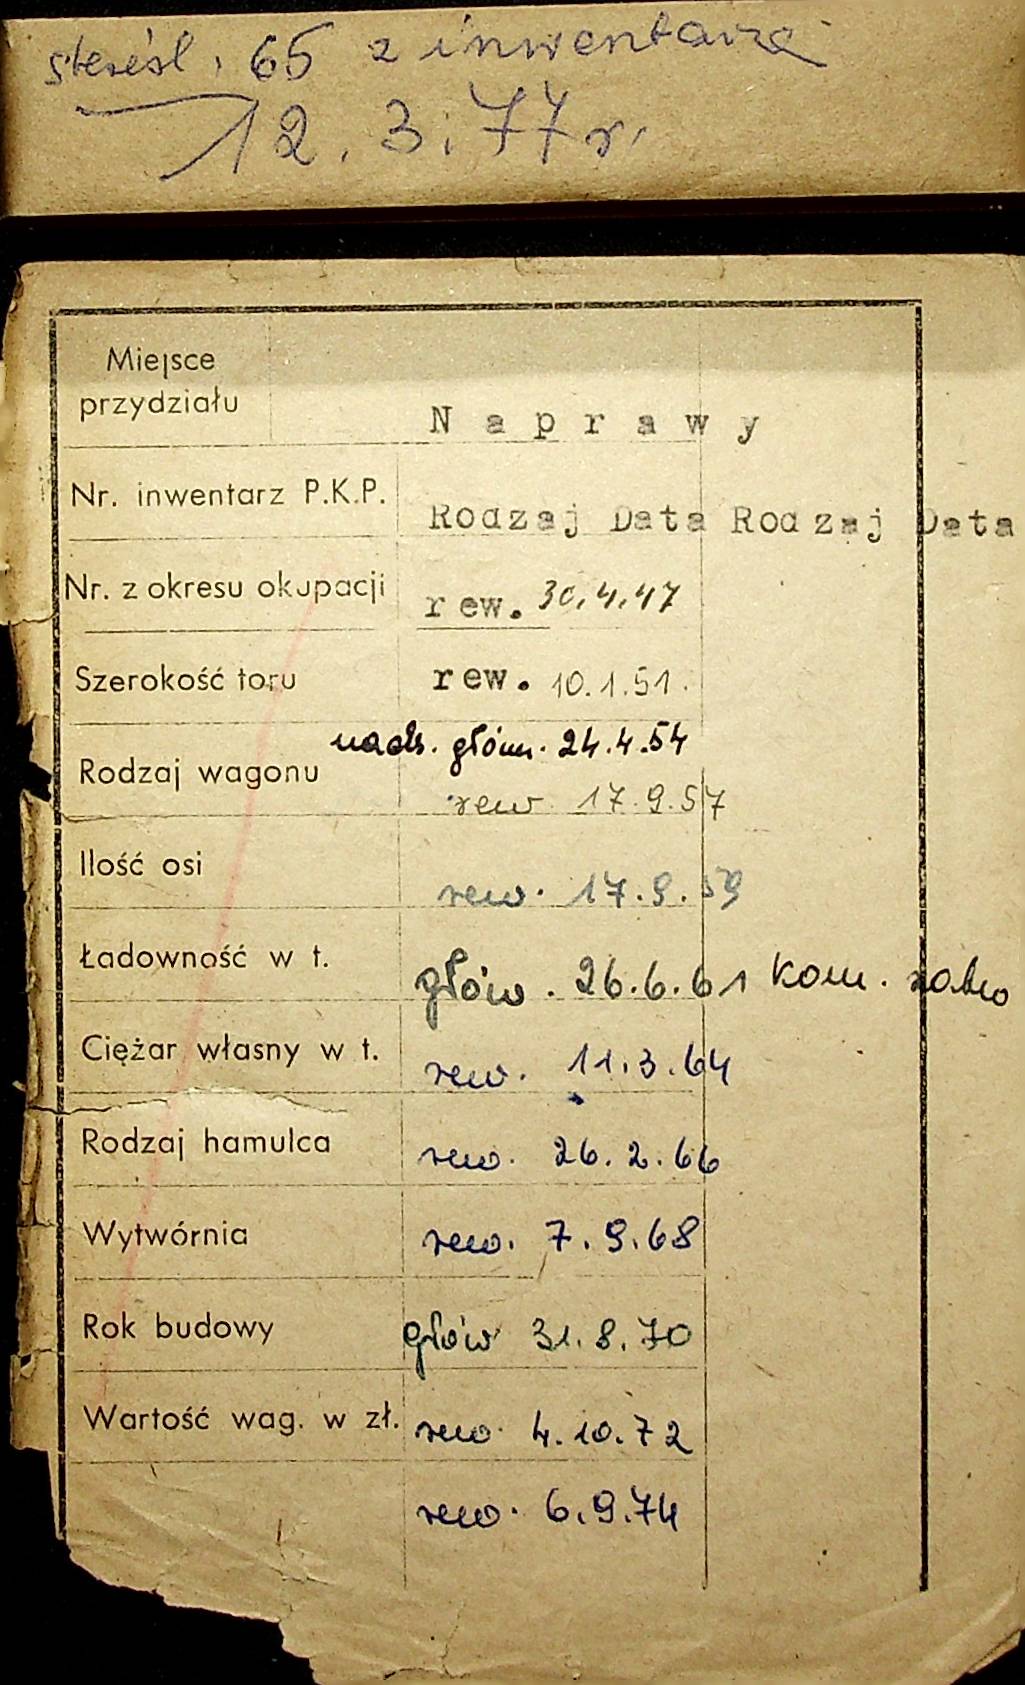 skreśl. 65 z inwentarza
12.3.77 r.
Miejsce
przydziału
Naprawy
Nr. inwentarz P.K.P.
Rodzaj Data Rodzaj Data
Nr. z okresu okupacji
rew. 30.4.47
Szerokość toru
rew. 10.1.51.
nads. główn. 24.4.54
Rodzaj wagonu
rew. 17.9.57
Ilość osi
rew. 17.9.59
Ładowność w t.
głów. 26.6.61 kom.
Ciężar własny w t.
rew. 11.3.64
Rodzaj hamulca
rew. 26.2.66
Wytwórnia
rew. 7.9.68
Rok budowy
głów 31.8.70
Wartość wag. w zł.
rew. 4.10.72
rew. 6.9.74